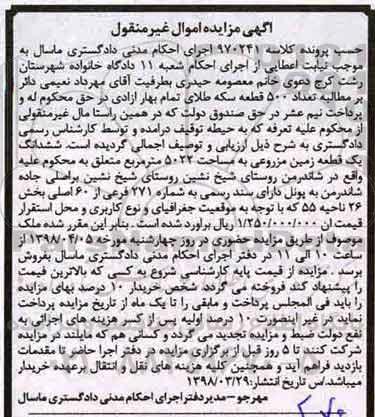 آگهی مزایده اموال غیرمنقول
حسب پرونده کلاسه ۹۷۰۲۴۱ اجرای احکام مدنی دادگستری ماسال به
موجب نیابت اعطایی از اجرای احکام شعبه ۱۱ دادگاه خانواده شهرستان
رشت کرج دعوی خانم معصومه حیدری بطرفیت آقای مهرداد نعیمی دائر
بر مطالبه تعداد ۵۰۰ قطعه سکه طلای تمام بهار ازادی در حق محکوم له و
پرداخت نیم عشر در حق صندوق دولت که در همین راستا مال غیرمنقولی
از محکوم علیه تعرفه که به حیطه توقیف درامده و توسط کارشناس رسمی
دادگستری به شرح ذیل ارزیابی و توصیف اجمالی گردیده است. ششدانگ
یک قطعه زمین مزروعی به مساحت ۵۰۲۲ مترمربع متعلق به محکوم علیه
واقع در شاندرمن روستای شیخ نشین روستای شیخ نشین براصلی جاده
شاندرمن به پونل دارای سند رسمی به شماره ۲۷۱ فرعی از ۶۰ اصلی بخش
۲۶ ناحیه ۵۵ که با توجه به موقعیت جغرافیای و نوع کاربری و محل استقرار
قیمت ان ۱/۲۵۰/۰۰۰/۰۰۰ ریال براورد شده است. بنابر این مقرر شده ملک
موصوف از طریق مزایده حضوری در روز چهارشنبه مورخه ۱۳۹۸/۰۴/۰۵ از
ساعت ۱۰ الی ۱۱ در دفتر اجرای احکام مدنی دادگستری ماسال بفروش
برسد . مزایده از قیمت پایه کارشناسی شروع به کسی که بالاترین قیمت
را پیشنهاد کند فروخته می گردد شخص خریدار ۱۰ درصد بهای مزایده
را باید فی المجلس پرداخت و مابقی را تا یک ماه از تاریخ مزایده پرداخت
نماید در غیر اینصورت ۱۰ درصد اولیه پس از کسر هزینه های اجرائی به
نفع دولت ضبط و مزایده تجدید می گردد و کسانی هم که مایلند در مزایده
شرکت کنند تا ۵ روز قبل از برگزاری مزایده در دفتر اجرا حاضر تا مقدمات
بازدید فراهم آید و همچنین کلیه هزینه های نقل و انتقال برعهده خریدار
میباشد/س تاریخ انتشار:۱۳۹۸/۰۳/۲۹
مهرجو - مدیردفتراجرای احکام مدنی دادگستری ماسال